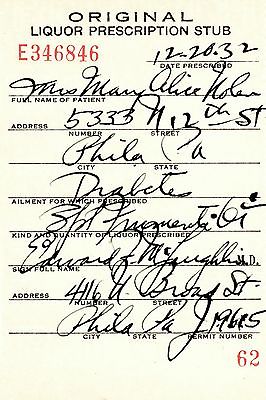 ORIGINAL
LIQUOR PRESCRIPTION STUB
E346846
12-20-32
DATE PRESCRIBED
Mrs Mary Alice Nolan
FULL NAME OF PATIENT
5333 N 12th St
ADDRESS NUMBER STREET
Phila Pa
CITY STATE
Diabetes
AILMENT FOR WHICH PRESCRIBED
Spt Frumenti Oi
KIND AND QUANTITY OF LIQUOR PRESCRIBED
Edward L McLaughlin M.D.
SIGN FULL NAME
4116 N Broad St.
ADDRESS NUMBER STREET
Phila Pa J19615
CITY STATE PERMIT NUMBER
62